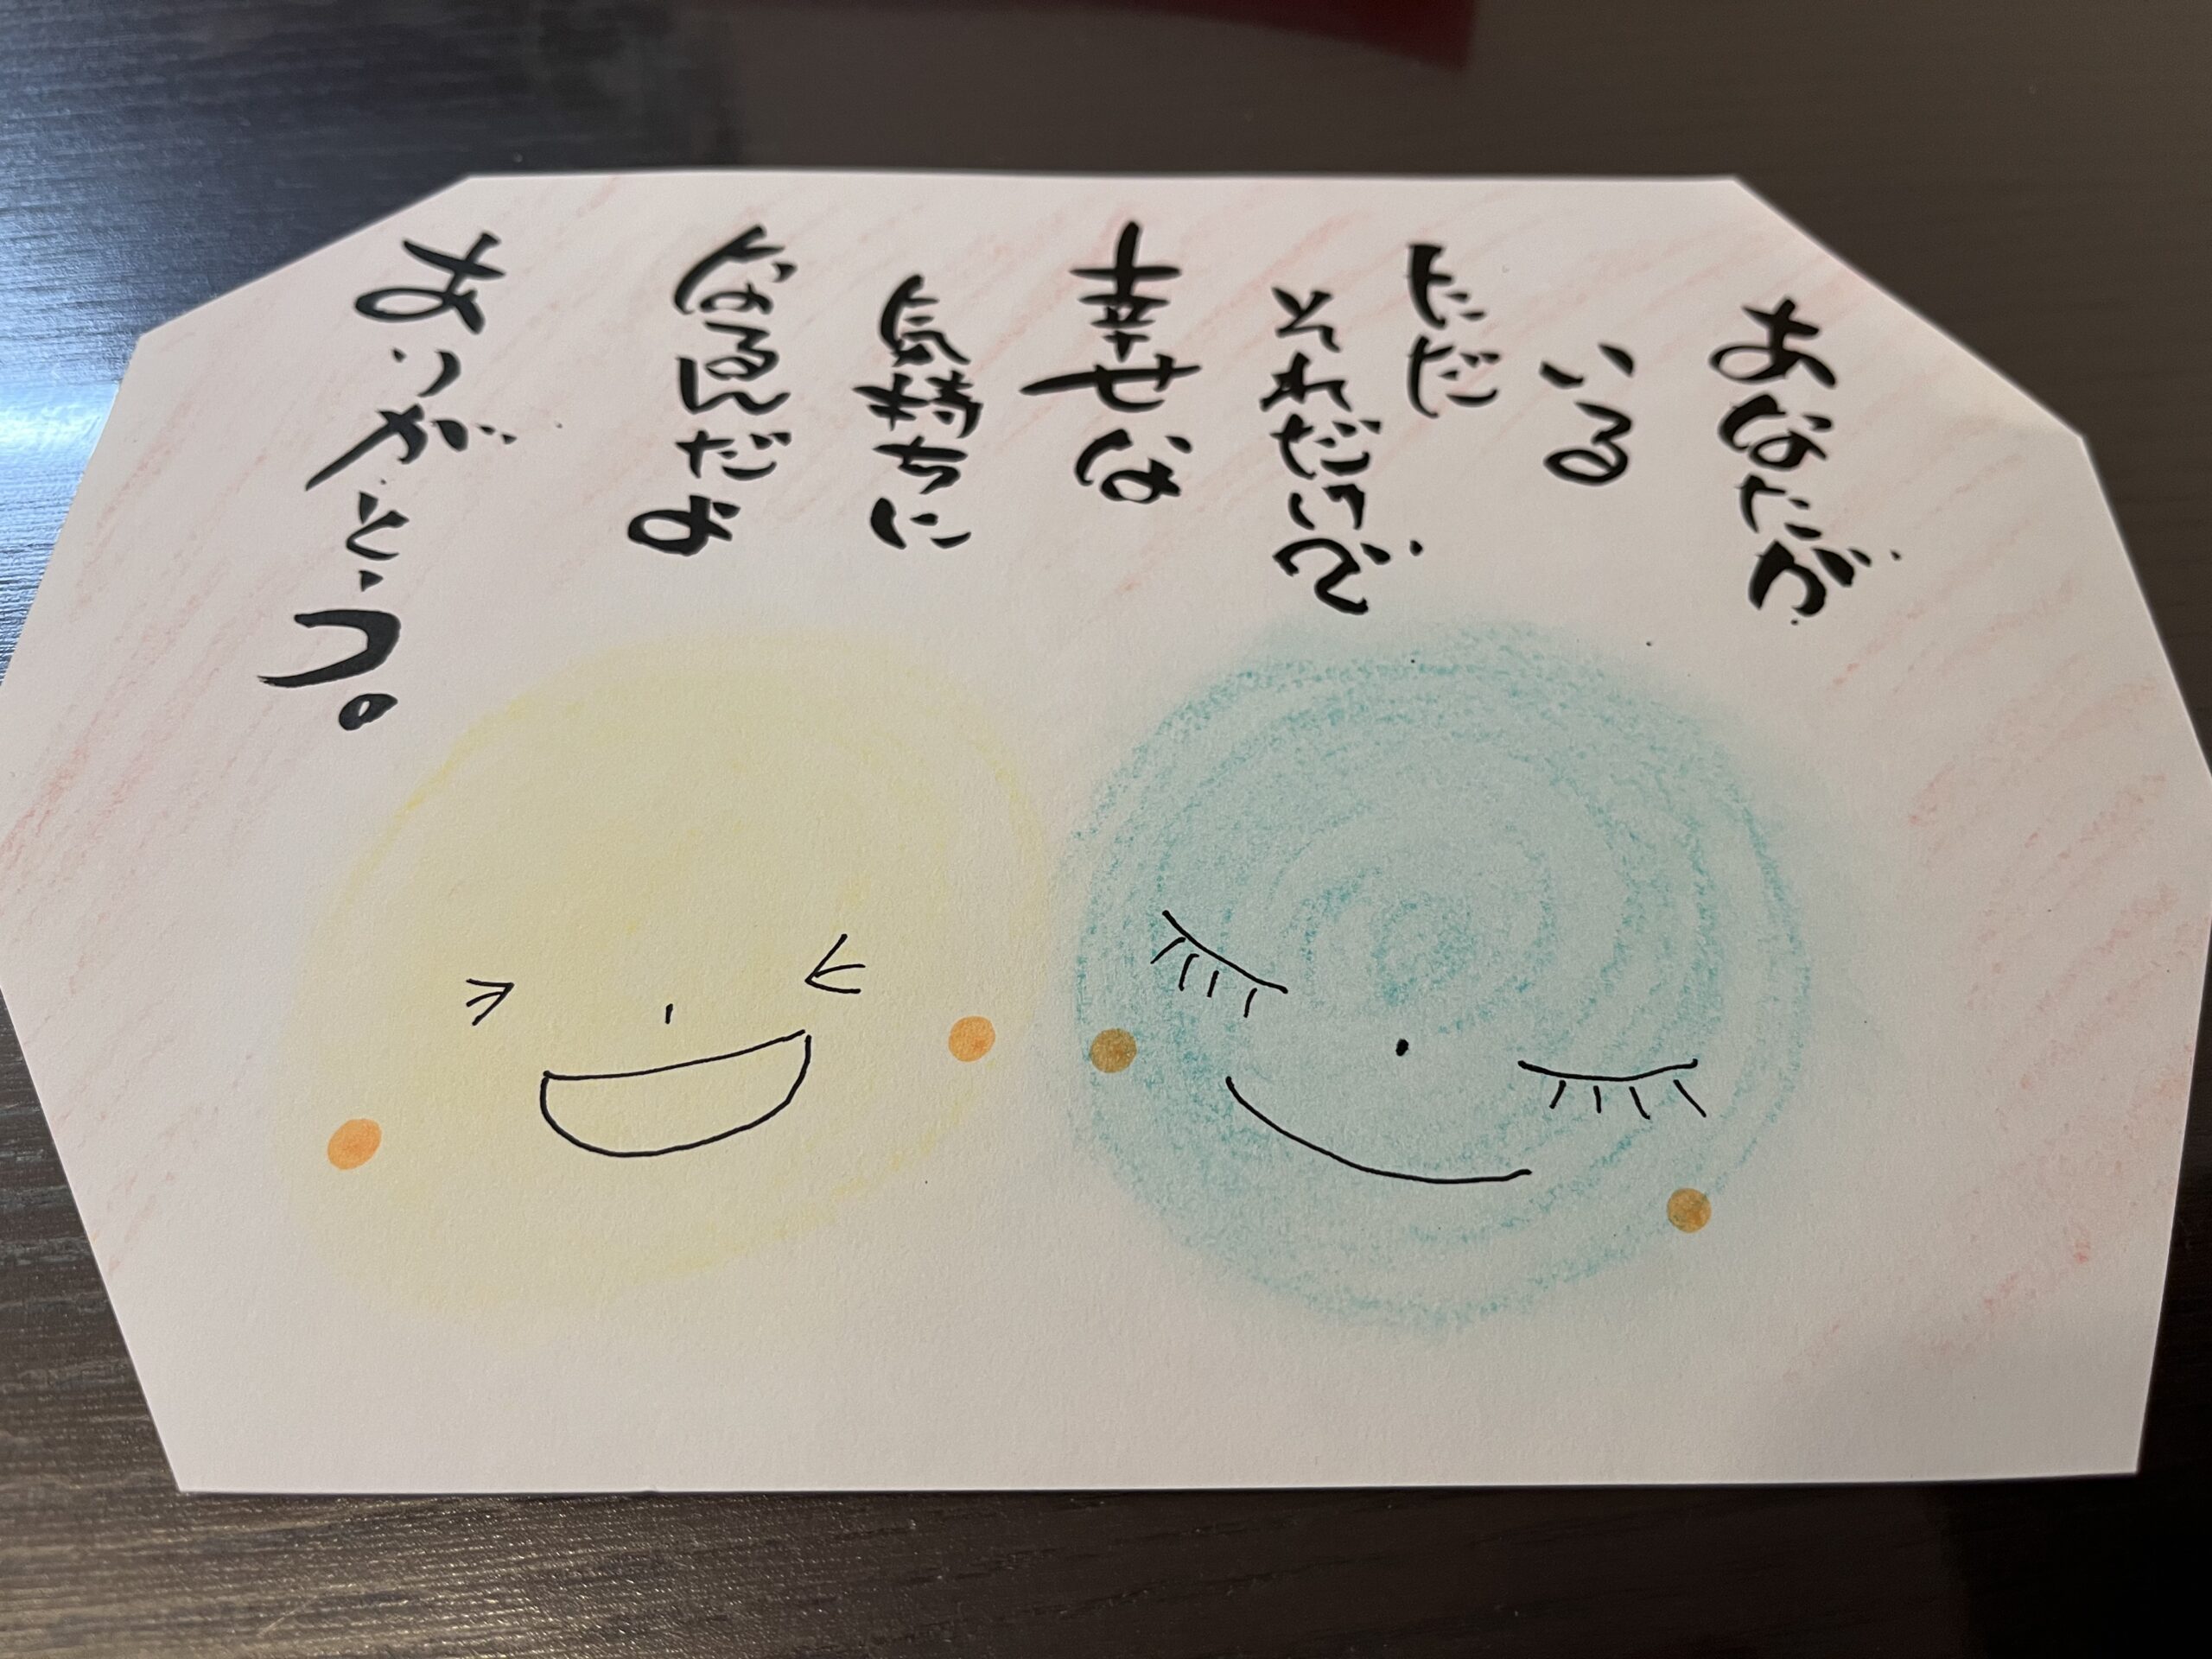 あなたが
いる
ただ
それだけで
幸せな
気持ちに
なるんだよ
ありがとう。